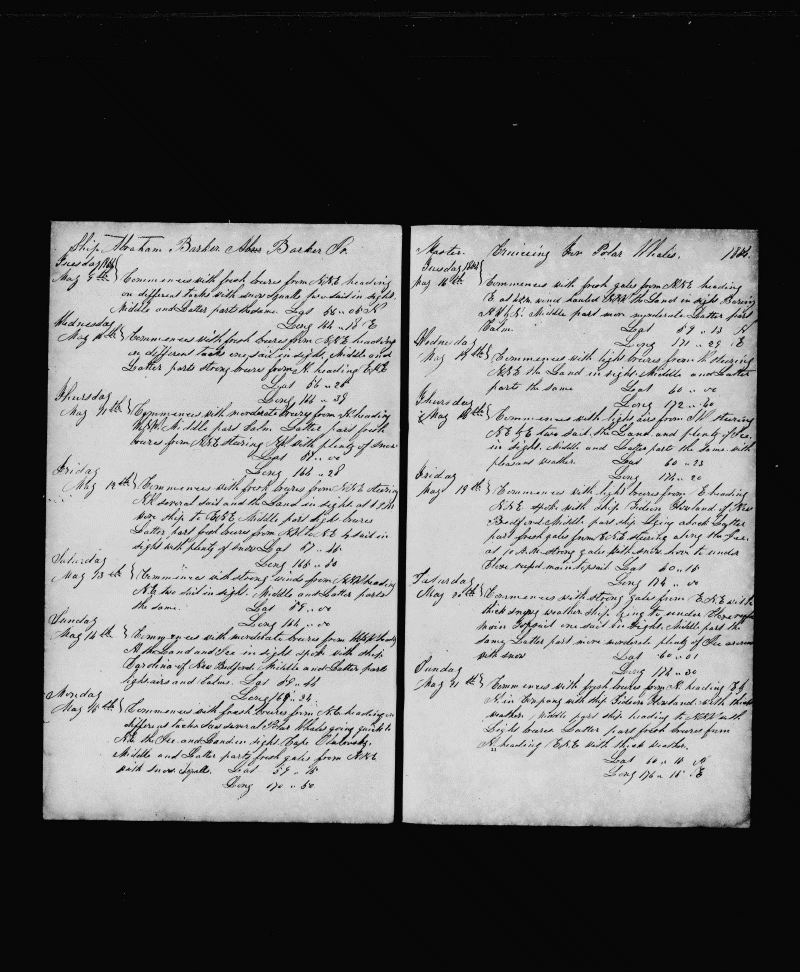 Ship Abraham Barker Abner Barker Jr.
Tuesday
May 9th Commences with fresh breres from NNE heading
on different tacks with snow squalls four sail in sight.
Middle and Latter parts the same. Lat 56 " 05 N
Long 164 " 18 E
Wednesday
May 10th Commences with fresh breres from NNE heading
on different tacks one sail in sight, Middle and
Latter parts strong breres from N heading ENE
Lat 56 " 25
Long 164 " 39
Thursday
May 11th Commences with moderate breres from N heading
Middle part Calm Latter part fresh
breres from NNE steering NW with plenty of snow
Lat " 00
Long 166 " 28
Friday
May 12th Commences with fresh breres from NNE steering
NW several sail and the Land in sight at
wore ship to ENE, Middle part light breres
Latter part fresh breres from to NE sail in
sight with plenty of snow Lat
Long 166 " 30
Saturday
May 13th Commences with strong winds from heading
NE two sail in sight. Middle and Latter parts
the same. Lat 59 " 00
Long 166 " 00
Sunday
May 14th Commences with moderate breres from heading
N the Land and Ice in sight spoke with ship
Carolina of New Bedford. Middle and Latter parts
light airs and Calms. Lat 59 "
Long 169 " 24
Monday
May 15th Commences with fresh breres from NE heading on
different tacks saw several Polar Whales going quick to
NE the Ice and Land in sight. Cape
Middle and Latter parts fresh gales from NNE
with snow squalls. Lat 59 " 15
Long 170 " 50
Master. Cruiseing For Polar Whales. 1866
Tuesday
May 16th Commences with fresh gales from NNE heading
E at wind hauled the Land in sight Bearing
Middle part more moderate Latter part
Calm. Lat 59 " 13 N
Long 171 " 29 E
Wednesday
May 17th Commences with light breres from steering
NNE the Land in sight Middle and Latter
parts the same Lat 60 " 00
Long 172 "
Thursday
May 18th Commences with light airs from SW steering
NE by E two sail, the Land, and plenty of Ice
in sight. Middle and Latter parts the same with
pleasant weather. Lat 60 " 23
Long 174 " 20
Friday
May 19th Commences with light breres from E heading
NNE spoke with ship Gideon Howland of New
Bedford Middle part ship Lying aback Latter
part fresh gales from ENE steering along the Ice.
at 10 AM strong gales with snow hove to under
Close reefed maintopsail Lat 60 " 15
Long 174 " 00
Saturday
May 20th Commences with strong gales from ENE with
thick snowy weather, ship lying to under Close reefed
main Topsail one sail in sight. Middle part the
same, Latter part more moderate plenty of Ice around
with snow Lat 60 " 01
Long 174 " 30
Sunday
May 21th Commences with fresh breres from N heading E by
N, in Company with ship Gideon Howland: with thick
weather, Middle part ship heading to NNW with
Light breres Latter part fresh breres from
N. heading ENE with thick weather.
Lat 60 " 15 N
Long 176 " 15 E